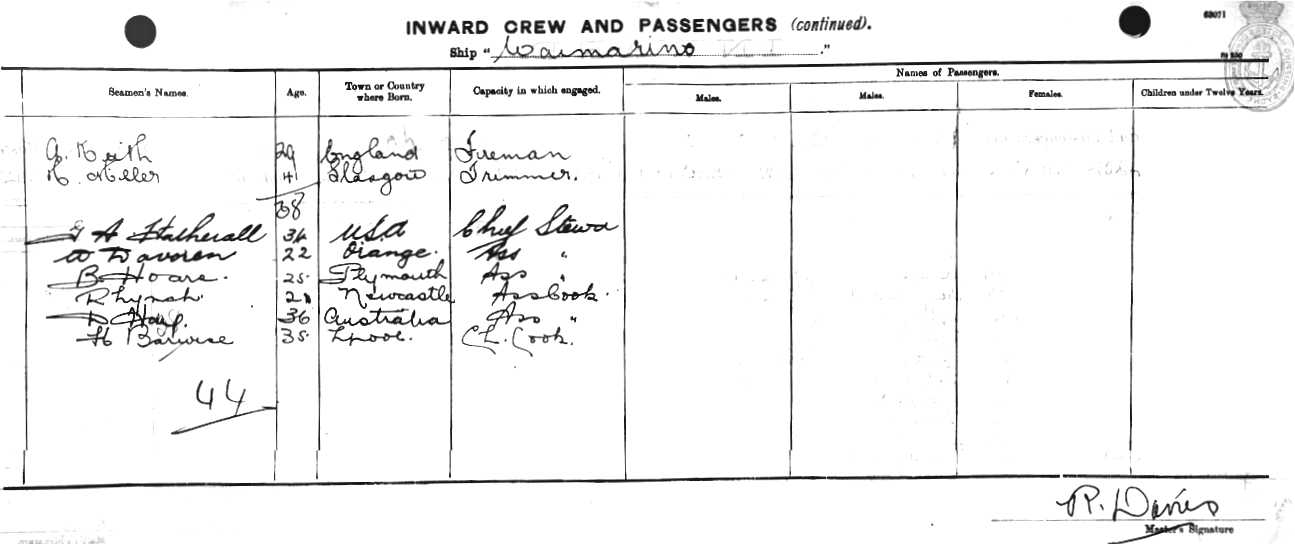 63071
INWARD CREW AND PASSENGERS (continued).
Ship "Waimarino"
Seamen's Names. Age. Town or Country where Born. Capacity in which engaged. Names of Passengers.
Males. Males. Females. Children under Twelve Years.
A. Keith 29 England Fireman
H. Miller 41 Glasgow Trimmer.
38
G A Hatherall 34 USA Chief Stewd
W Davoren 22 Orange. Ass "
B. Hoare. 25 Plymouth Ass "
Rhynah. 21 Newcastle Ass Cook.
36 Australia Ass "
H Barwise 35 Lpool. Ch. Cook.
44
R. Davies
Master's Signature